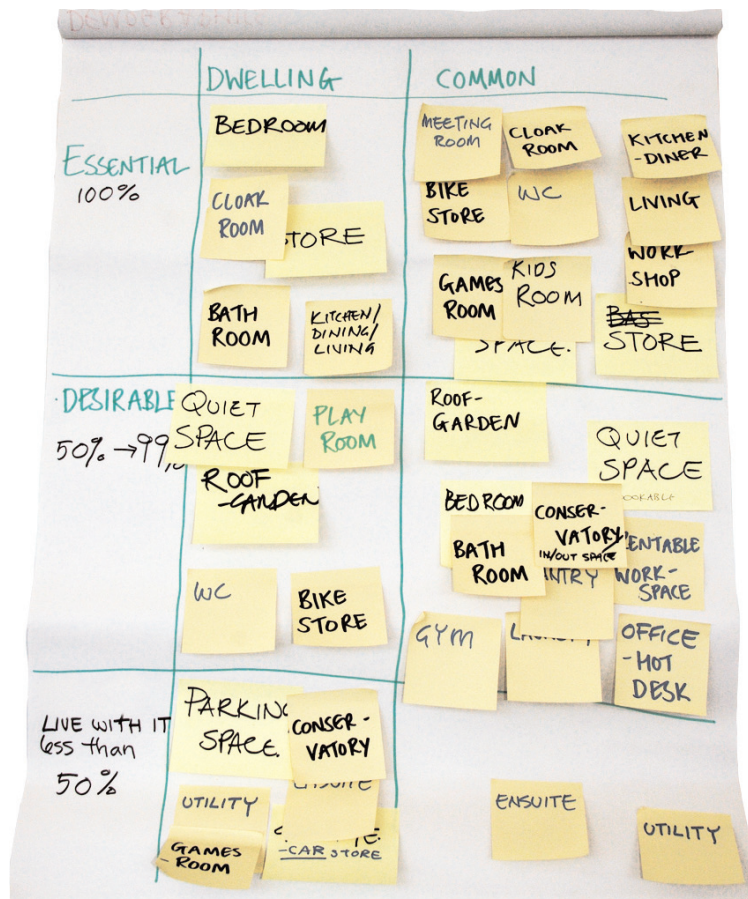 DWELLING
COMMON
ESSENTIAL
100%
BEDROOM
CLOAK
ROOM
STORE
BATH
ROOM
KITCHEN/
DINING/
LIVING
MEETING
ROOM
CLOAK
ROOM
KITCHEN
-DINER
BIKE
STORE
WC
LIVING
WORK
SHOP
GAMES
ROOM
KIDS
ROOM
SPACE.
BAS
STORE
DESIRABLE
50% →99%
QUIET
SPACE
PLAY
ROOM
ROOF
-GARDEN
WC
BIKE
STORE
ROOF-
GARDEN
QUIET
SPACE
BEDROOM
CONSER-
VATORY
IN/OUT SPACE
BATH
ROOM
WORK-
SPACE
GYM
OFFICE
-HOT
DESK
LIVE WITH IT
less than
50%
PARKING
SPACE.
CONSER-
VATORY
UTILITY
GAMES
-ROOM
-CAR STORE
ENSUITE
UTILITY